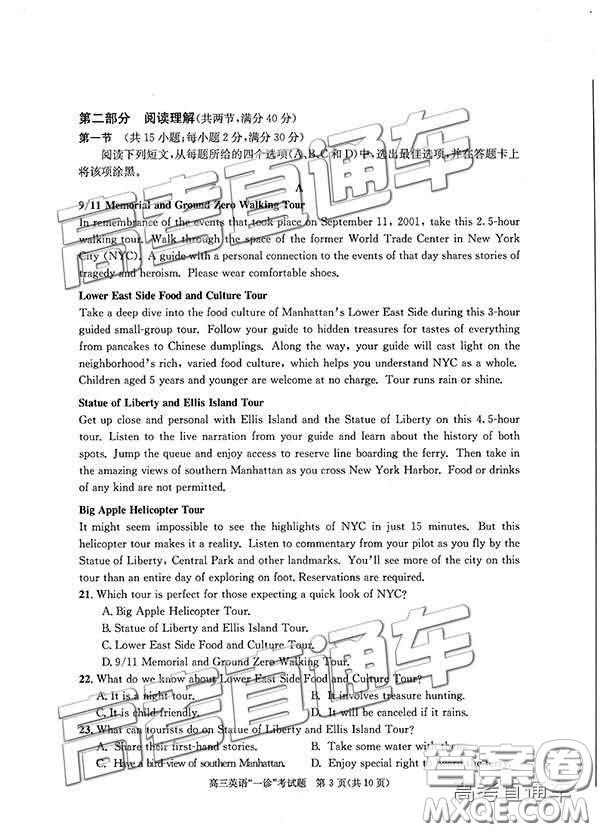 第二部分 阅读理解(共两节,满分40分)
第一节 (共15小题;每小题2分,满分30分)
阅读下列短文,从每题所给的四个选项(A、B、C和D)中,选出最佳选项,并在答题卡上
将该项涂黑。
A
9/11 Memorial and Ground Zero Walking Tour
In remembrance of the events that took place on September 11, 2001, take this 2.5-hour
walking tour. Walk through the space of the former World Trade Center in New York
City (NYC). A guide with a personal connection to the events of that day shares stories of
tragedy and heroism. Please wear comfortable shoes.
Lower East Side Food and Culture Tour
Take a deep dive into the food culture of Manhattan's Lower East Side during this 3-hour
guided small-group tour. Follow your guide to hidden treasures for tastes of everything
from pancakes to Chinese dumplings. Along the way, your guide will cast light on the
neighborhood's rich, varied food culture, which helps you understand NYC as a whole.
Children aged 5 years and younger are welcome at no charge. Tour runs rain or shine.
Statue of Liberty and Ellis Island Tour
Get up close and personal with Ellis Island and the Statue of Liberty on this 4.5-hour
tour. Listen to the live narration from your guide and learn about the history of both
spots. Jump the queue and enjoy access to reserve line boarding the ferry. Then take in
the amazing views of southern Manhattan as you cross New York Harbor. Food or drinks
of any kind are not permitted.
Big Apple Helicopter Tour
It might seem impossible to see the highlights of NYC in just 15 minutes. But this
helicopter tour makes it a reality. Listen to commentary from your pilot as you fly by the
Statue of Liberty, Central Park and other landmarks. You'll see more of the city on this
tour than an entire day of exploring on foot. Reservations are required.
21. Which tour is perfect for those expecting a quick look of NYC?
A. Big Apple Helicopter Tour.
B. Statue of Liberty and Ellis Island Tour.
C. Lower East Side Food and Culture Tour.
D. 9/11 Memorial and Ground Zero Walking Tour.
22. What do we know about Lower East Side Food and Culture Tour?
A. It is a night tour. B. It involves treasure hunting.
C. It is child friendly. D. It will be canceled if it rains.
23. What can tourists do on Statue of Liberty and Ellis Island Tour?
A. Share their first-hand stories. B. Take some water with them.
C. Have a bird-view of southern Manhattan. D. Enjoy special right to board the ferry.
高三英语“一诊”考试题 第3页(共10页)
高考直通车
高考直通车
高考直通车
高考直通车
答案圈
MXQE.COM